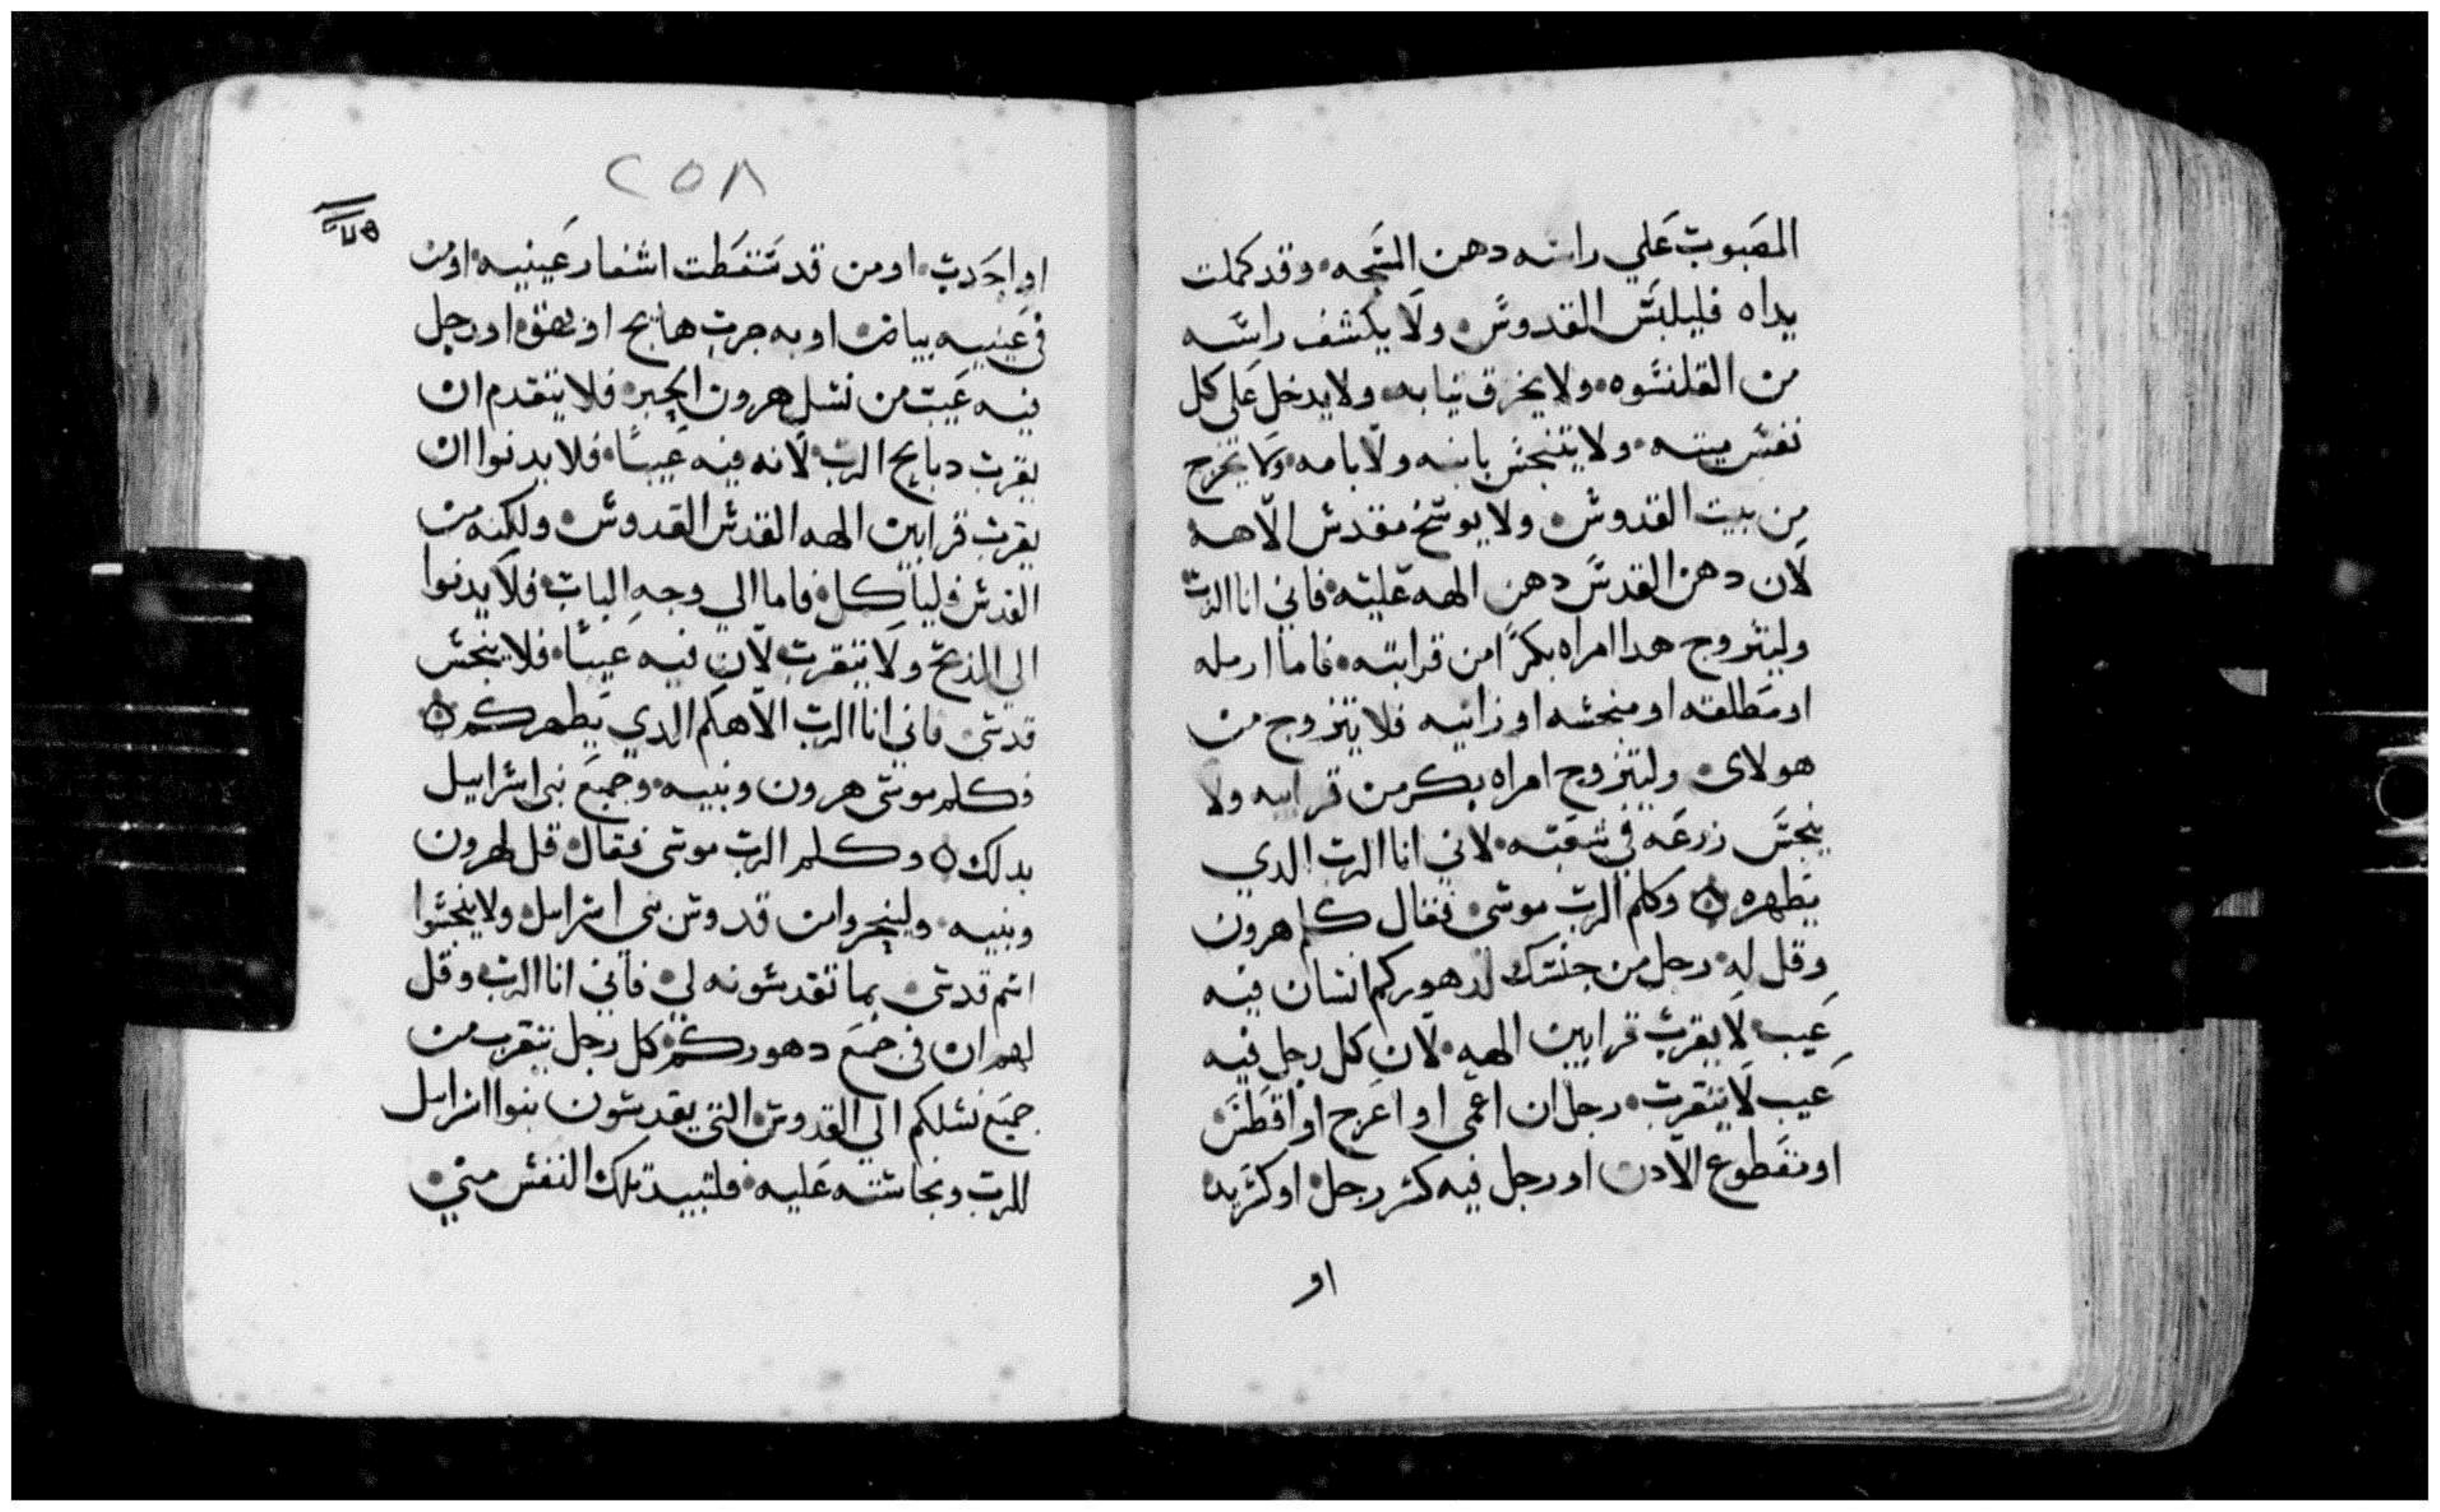 المصبوب علي راسه دهن المسحه • وقد كملت
يداه فليلبس القدوس • ولا يكشف راسه
من القلنسوه • ولا يخرق تيابه • ولا يدخل على كل
نفس ميته • ولا يتنجس بابيه ولا بامه • ولا يخرج
من بيت القدوس • ولا يوسخ مقدس الاهه
لان دهن القدس دهن الهه عليه • فاني انا الرب
وليتزوج هدا امراه بكرًا من قرابته • فاما ارمله
او مطلقه او منجسه او زانيه فلا يتزوج من
هولاى • وليتزوج امراه بكر من قرابته ولا
ينجس زرعه في شعبه • لاني انا الرب الدي
يطهره ۞ وكلم الرب موسى • فقال كلم هرون
وقل له • رجل من جنسك لدهوركم انسان فيه
عيب لا يقرب قرابين الهه • لان كل رجل فيه
عيب لا يتقرب • رجل ان اعمى او اعرج او اقطس
او مقطوع الادن او رجل فيه كسر رجل • او كسر يد
او
٢٥٨
او احدب • او من قد سقطت اشفار عينيه • او من
في عينيه بياض • او به جرب هايج او بهق • او رجل
فيه عيب من نسل هرون الحبر • فلا يتقدم ان
يقرب دبايح الرب • لانه فيه عيبًا • فلا يدنوا ان
يقرب قرابين الهه القدس القدوس • ولكنه من
القدس فلياكل • فاما الي وجه الباب • فلا يدنوا
الي المذبح ولا يتقرب لان فيه عيبًا • فلا ينجس
قدسى • فاني انا الرب الاهكم الدي يطهركم ۞
فكلم موسى هرون وبنيه • وجميع بني اسراييل
بدلك ۞ وكلم الرب موسى فقال • قل لهرون
وبنيه • من قدوس بني اسراىيل • ولا ينجسوا
اسم قدسى • بما تقدسونه لي • فاني انا الرب • وقل
لهم ان في جميع دهوركم • كل رجل يتقرب من
جميع نسلكم الي القدوس • التي يقدسون بنوا اسراىيل
للرب ونجاسته عليه • فلتبيد تلك النفس مني •